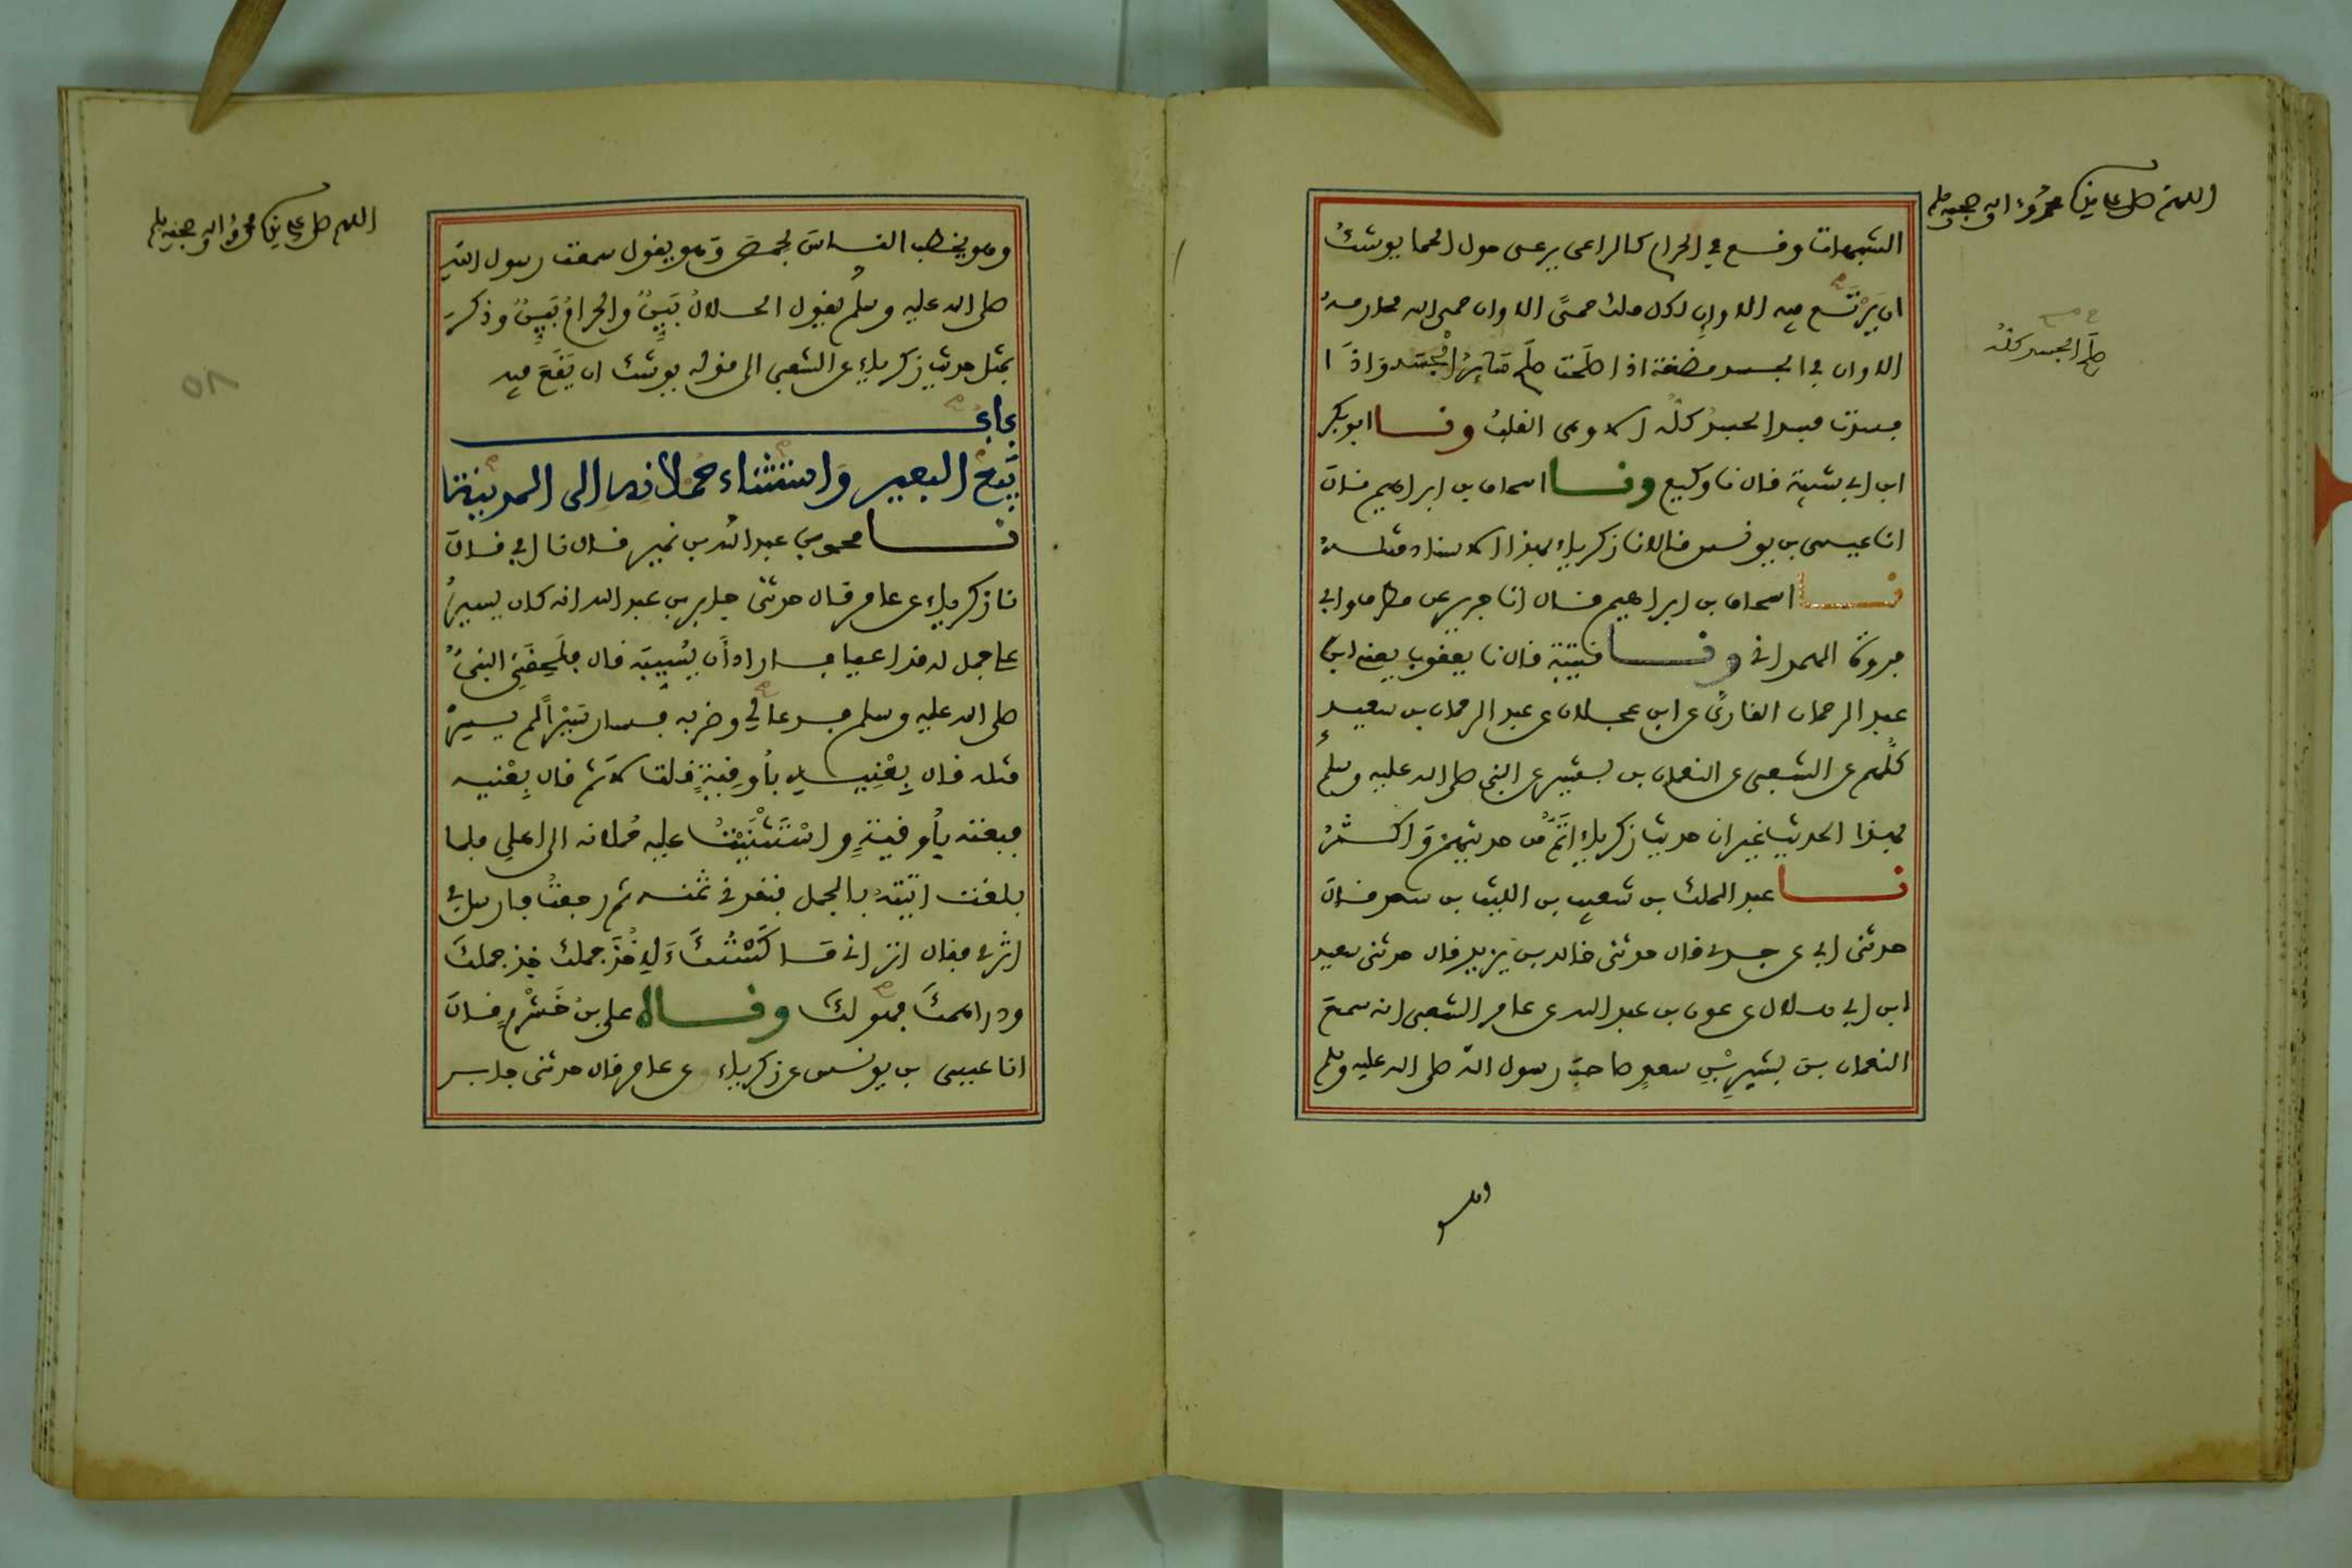 اللهم صل على سيدنا محمد وءاله وصحبه وسلم
الشبهات وقع في الحرام كالراعى يرعى حول الحما يوشكُ
ان يَرْتَع فيه الا وإن لكل ملك حمىً الا وان حمى الله محارمه
الا وان في الجسد مضغة اذا صلَحت صلَح سَائِرُ الجَسَد وَاذَا
فسدت فسد الجسدُ كلُّه الا وهى القلبُ وحدثنا ابو بكر
ابن ابي شيبة قال نا وكيع وحدثنا اسحاق بن ابراهيم قال
انا عيسى بن يونس قالا نا زكرياء بهذا الاسناد مثله
حدثنا اسحاق بن ابراهيم قال انا جرير عن مطرف وابي
فروة الهمداني وحدثنا قتيبة قال نا يعقوب يعني ابن
عبد الرحمان القاري عن ابن عجلان عن عبد الرحمان بن سعيد
كلُّهم عن الشعبى عن النعمان بن بشير عن النبى صلى الله عليه وسلم
بهذا الحديث غير ان حديث زكرياء اتَمُّ من حديثهم وَاكثرُ
حدثنا عبد الملك بن شعيب بن الليث بن سعد قال
حدثنى ابي عن جدى قال حدثنى خالد بن يزيد قال حدثنى سعيد
ابن ابي هلال عن عون بن عبد الله عن عامر الشعبى انه سمع
النعمان بن بشير بْنِ سعدٍ صاحبَ رسول الله صلى الله عليه وسلم
صلَح الجسد كله
وهو
اللهم صل على سيدنا محمد وءاله وصحبه وسلم
وهو يخطب الناسَ بحمصَ وَهو يقول سمعت رسول الله
صلى الله عليه وسلم يقول الحلالُ بَيِّنٌ والحرامُ بَيِّنٌ وذكر
بمثل حديث زكرياء عن الشعبى الى قوله يوشك ان يَقَعَ فيه
باب
بَيْع البعير وَاستثناء حُملانه الى المدينة
حدثنا محمد بن عبد الله بن نمير قال نا ابي قال
نا زكرياء عن عامر قال حدثنى جابر بن عبد الله انه كان يسيرُ
على جمل له قد اعيا فاراد أن يُسَيِّبَه قال فلَحِقَنِي النبىُّ
صلى الله عليه وسلم فدعا لي وضربه فسار سَيْراً لم يسِرْ
مثله قال بِعْنِيه بأُوقِيةٍ قلت لا ثم قال بِعْنيه
فبعته بأُوقيةٍ واسْتَثْنَيْتُ عليه حُملانه الى اهلى فلما
بلغت اتيتُه بالجمل فنقدنى ثمنه ثم رجعتُ فارسل في
اثرى فقال اتراني مَاكَسْتُكَ لآخُذَ جملك خذ جملكَ
ودراهمكَ فهو لكَ وحدثناه على بن خَشْرمٍ قال
انا عيسى بن يونس عن زكرياء عن عامر قال حدثنى جابر